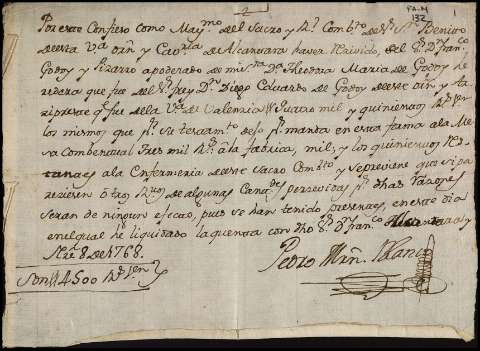 PA-M
132
Por este Confieso como May.mo del Sacro y R.l Comb.to de S.n Benito
de esta V.a orñ y Cav.ria de Alcantara haver Rezivido, del S.r D.n Fran.co
Godoy y Pizarro apoderado de mi S.ra D.a Theodora Maria de Godoy he
redera que fue del S.r frey D.n Diego Eduardo de Godoy de este orñ y Ar
zipreste q.e fue de la V.a de Valencia quatro mil y quinientos R.s de vellon
los mismos que p.r su testam.to dejo p.r manda en esta forma a la Me
sa Combentual tres mil R.s a la fabrica, mil, y los quinientos
a la Enfermeria de este Sacro Comb.to y se previene que si pa
rezieren otros Rezivos de algunas Cantid.es perzevidas p.r dhas razones
seran de ningun efecto, pues se han tenido presentes, en este dia
en el qual he liquidado la quenta con dho S.r D.n Fran.co Alcantara y
8 de 1768.
Son 4500 R.s
Pedro Mrñ. Blanco